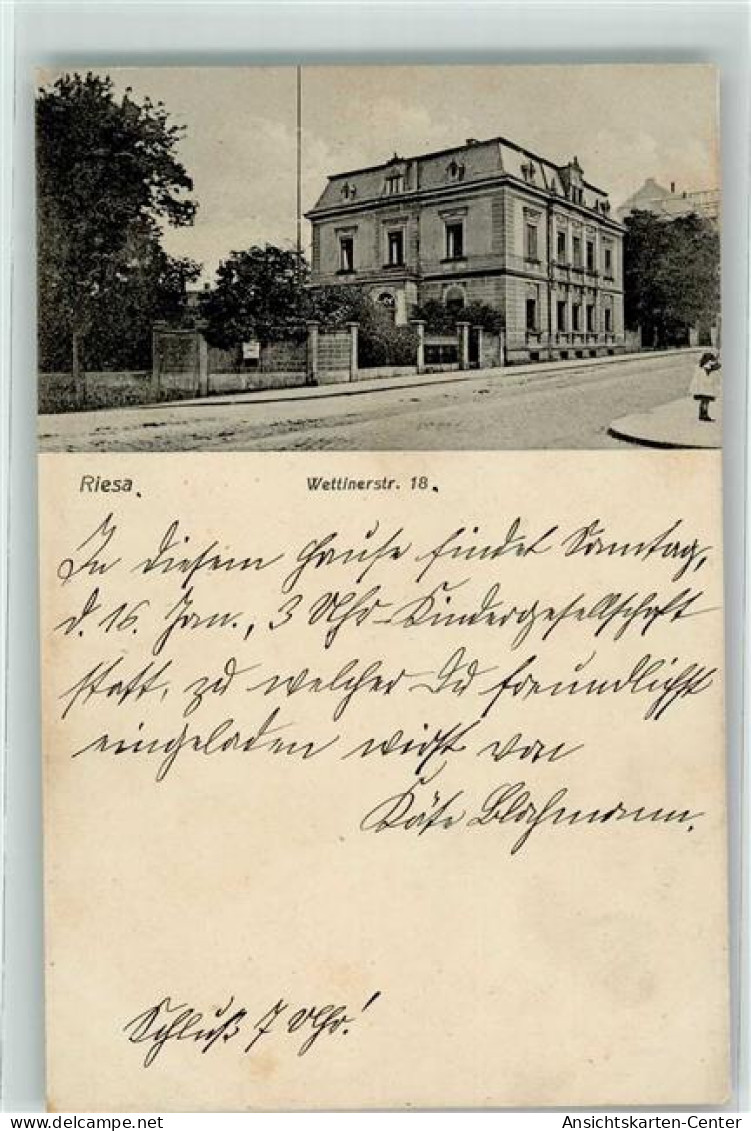 Riesa.
Wettinerstr. 18.
In diesem Hause findet Samtag,
d. 16. Jan., 3 Uhr Kindergesellschaft
statt, zu welcher Du freundlichst
eingeladen wirst von
Käte Blachmann.
Schluß 7 Uhr!
www.delcampe.net
Ansichtskarten-Center